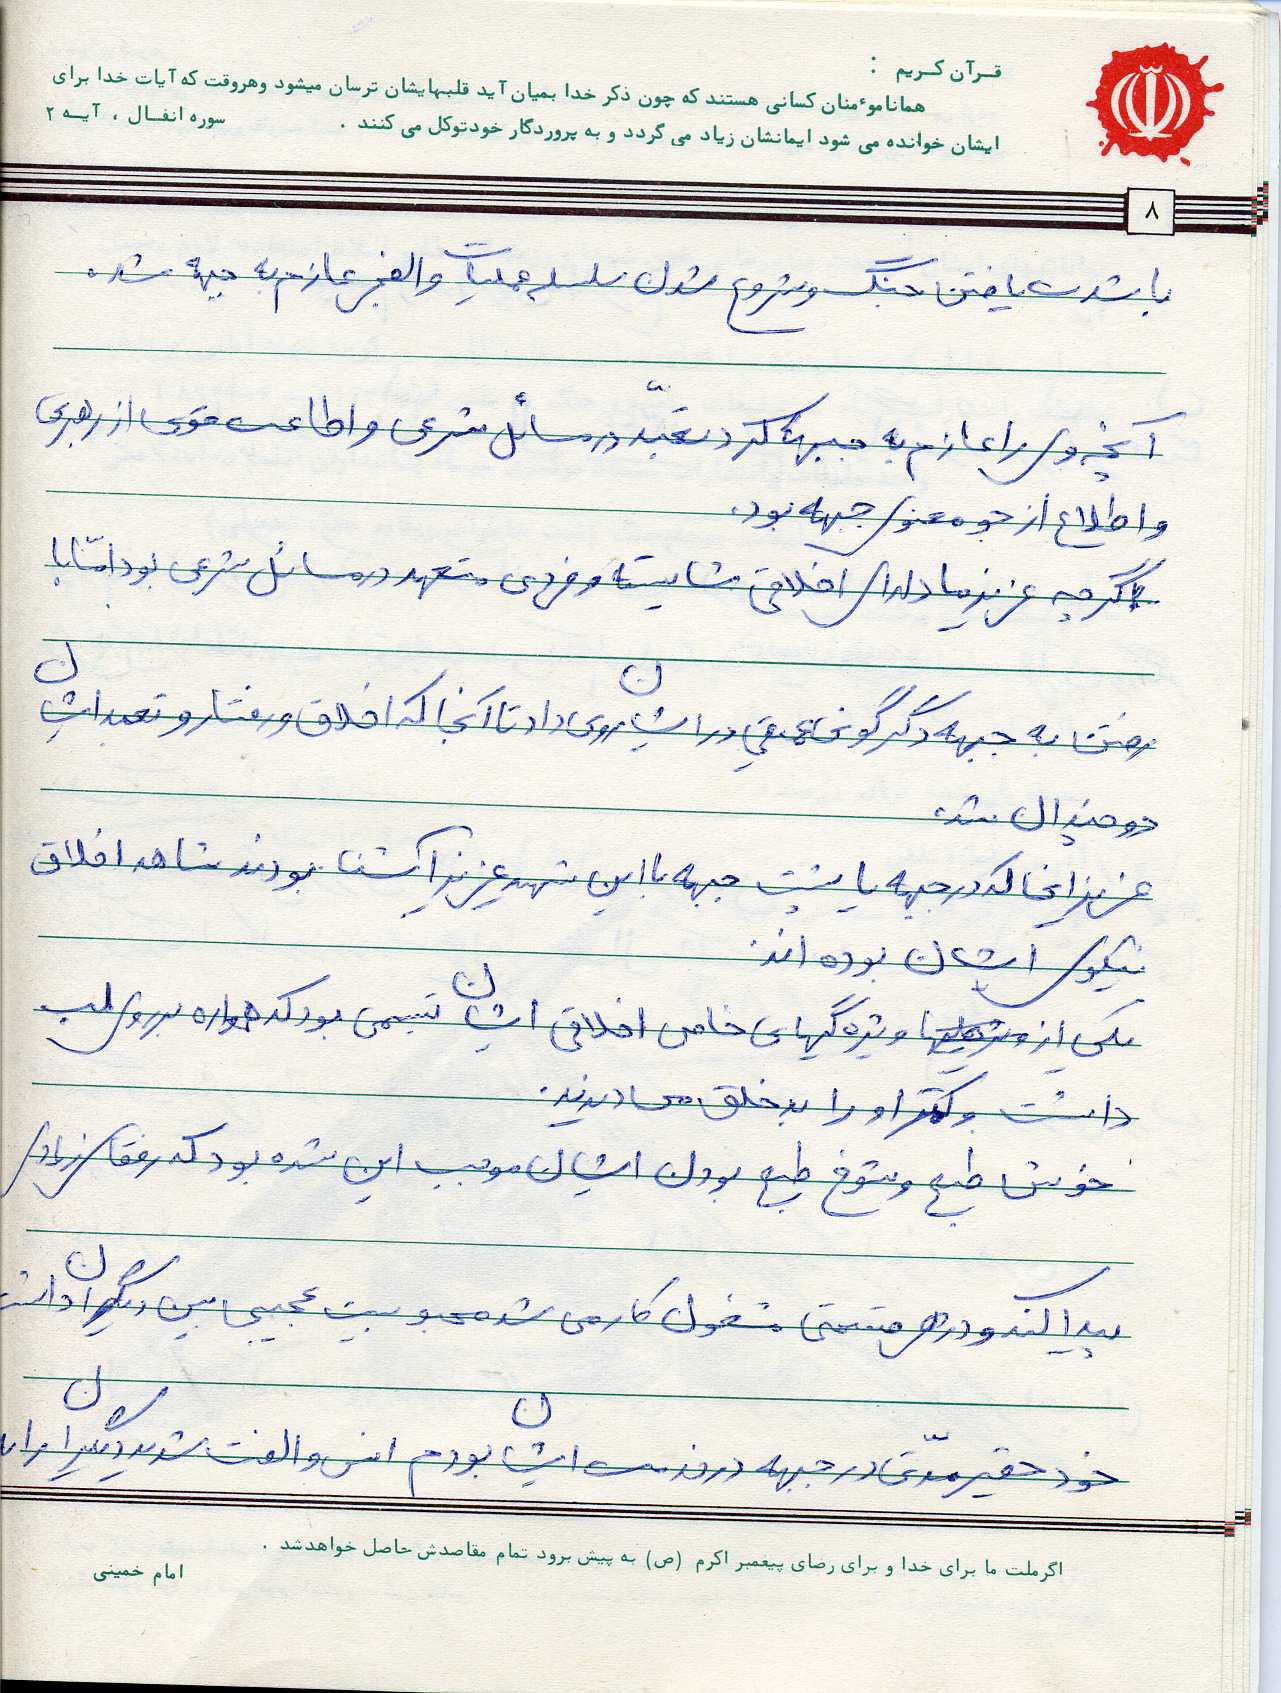 قـرآن کـریم :
همانا مو‌ٔمنان کسانی هستند که چون ذکر خدا بمیان آید قلبهایشان ترسان میشود وهروقت که آیات خدا برای
ایشان خوانده می شود ایمانشان زیاد می گردد و به پروردگار خودتوکل می کنند . سوره انفـال ، آیـه ۲
۸
با شدت یافتن جنگ و شروع شدن سلسله عملیات والفجر عازم به جبهه شد.
آنچه وی را عازم به جبهه کرد تعبّد در مسائل شرعی و اطاعت قوی از رهبری
و اطلاع از جو معنوی جبهه بود.
گرچه عزیز ما دارای اخلاقی شایسته و فردی متعهد در مسائل شرعی بود امّا با
رفتن به جبهه دگرگونی عمیقی در ایشان روی داد تا آنجا که اخلاق و رفتار و تعبد ایشان
دوچندان شد.
عزیزانی که در جبهه یا پشت جبهه با این شهید عزیز آشنا بودند شاهد اخلاق
نیکوی ایشان بوده اند.
یکی از ویژه گیهای خاص اخلاقی ایشان تبسمی بود که همواره بر روی لب
داشت و کمتر او را بدخلق می دیدند.
خوش طبع و شوخ طبع بودن ایشان موجب این شده بود که رفقای زیادی
پیدا کند و در هر قسمتی مشغول کار می شد محبوبیت عجیبی بین دیگران داشت
خود حقیر مدّتی در جبهه در خدمت ایشان بودم انس و الفت شدید دیگران را با
اگرملت ما برای خدا و برای رضای پیغمبر اکرم (ص) به پیش برود تمام مقاصدش حاصل خواهدشد .
امام خمینی